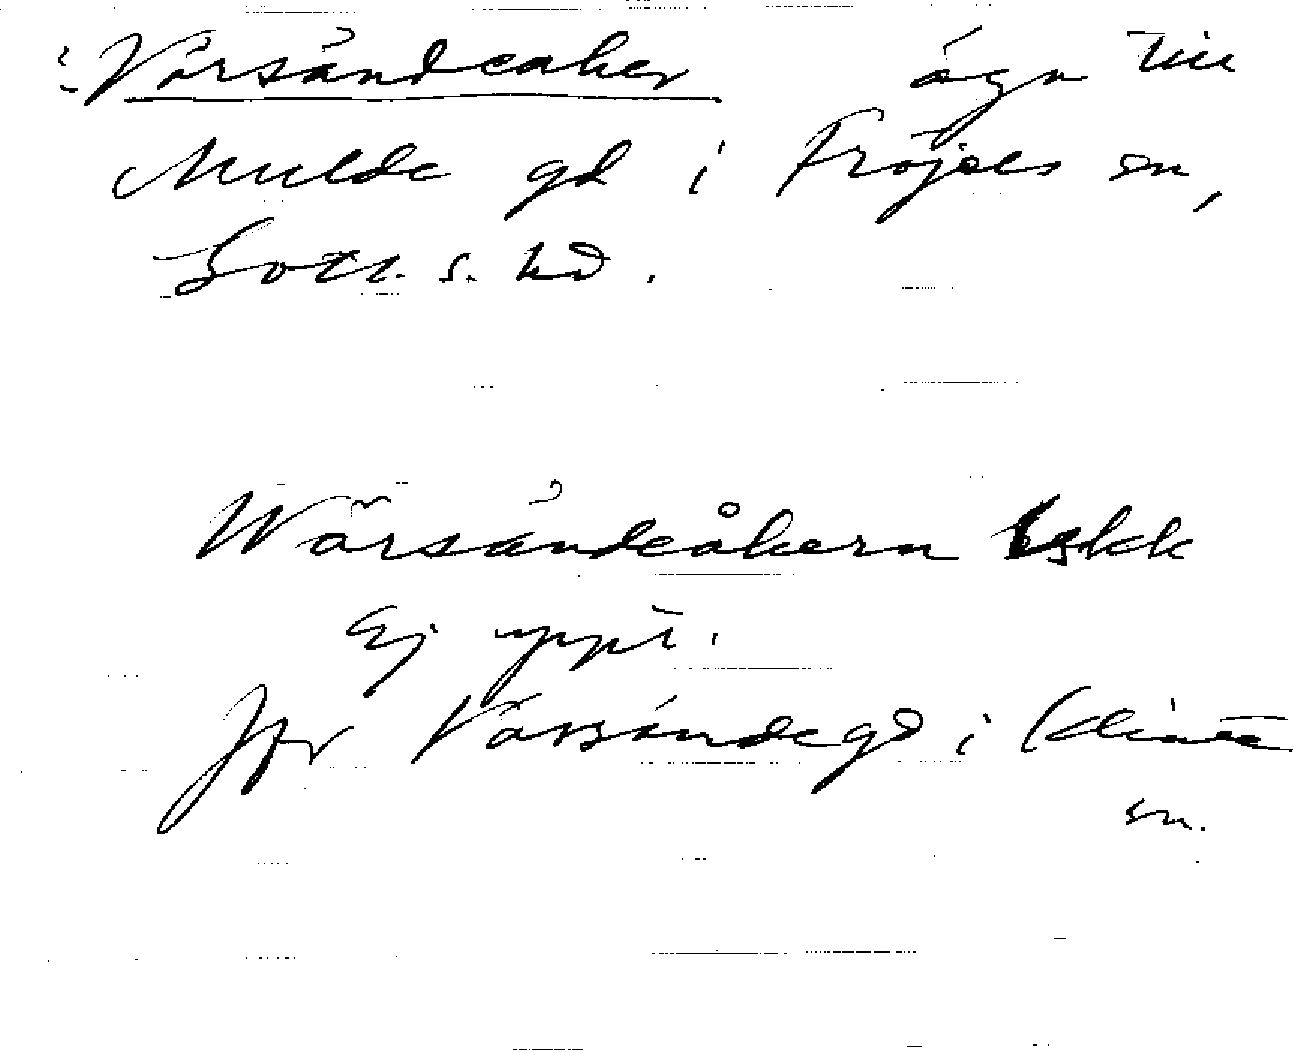 : Vårsändeåker ägn till
Mulde gd i Fröjels sn,
Gotl. s. hd.
Wärsändeåkern Lskk
Ej uppt.
Jfr Vässändegd i Klinte
sn.